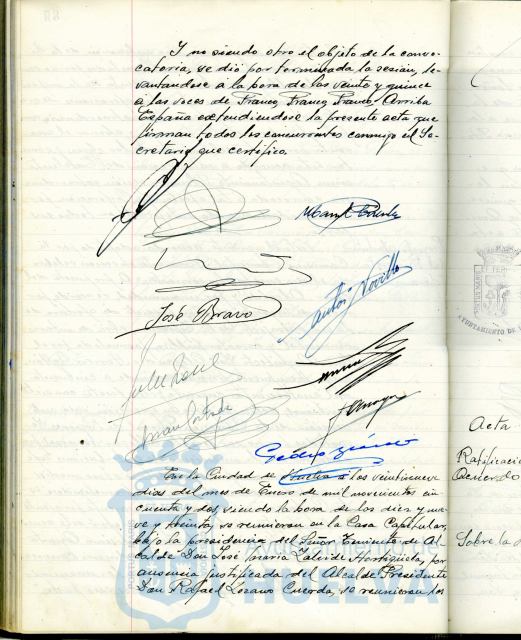 Y no siendo otro el objeto de la convo-
catoria, se dió por terminada la sesión, le-
vantandose a la hora de las veinte y quince
a las voces de Franco, Franco, Franco. Arriba
España extendiendose la presente acta que
firman todos los concurrentes conmigo el Se-
cretario que certifico.
José Bravo
Antº Novillo
En la Ciudad de Huelva a los veintinueve
dias del mes de Enero de mil novecientos cin
cuenta y dos, siendo la hora de las diez y nue
ve y treinta, se reunieron en la Casa Capitular,
bajo la presidencia del Señor Teniente de Al
calde Don José Maria Zalvide Hortigüela, por
ausencia justificada del Alcalde Presidente
Don Rafael Lozano Cuerda, se reunieron los
HUELVA
AYUNTAMIENTO DE
Acta
Ratificació
Acuerdo
Sobre la